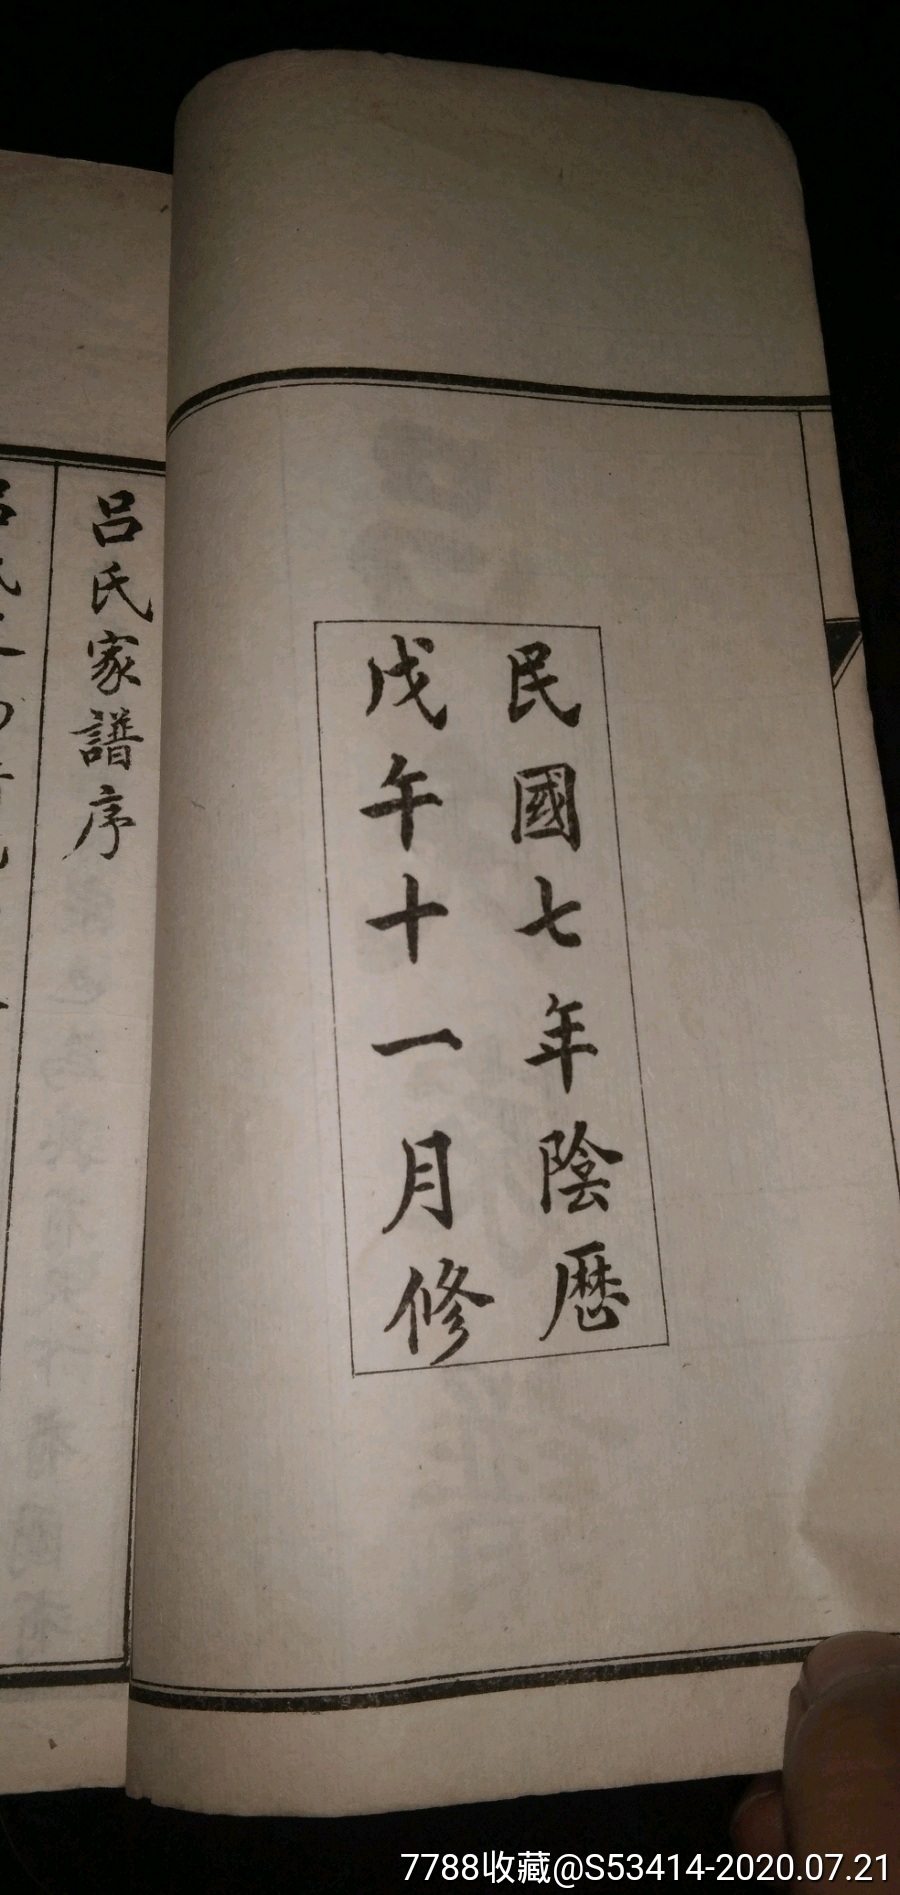 民國七年陰歷
戊午十一月修
呂氏家譜序
7788收藏@S53414-2020.07.21